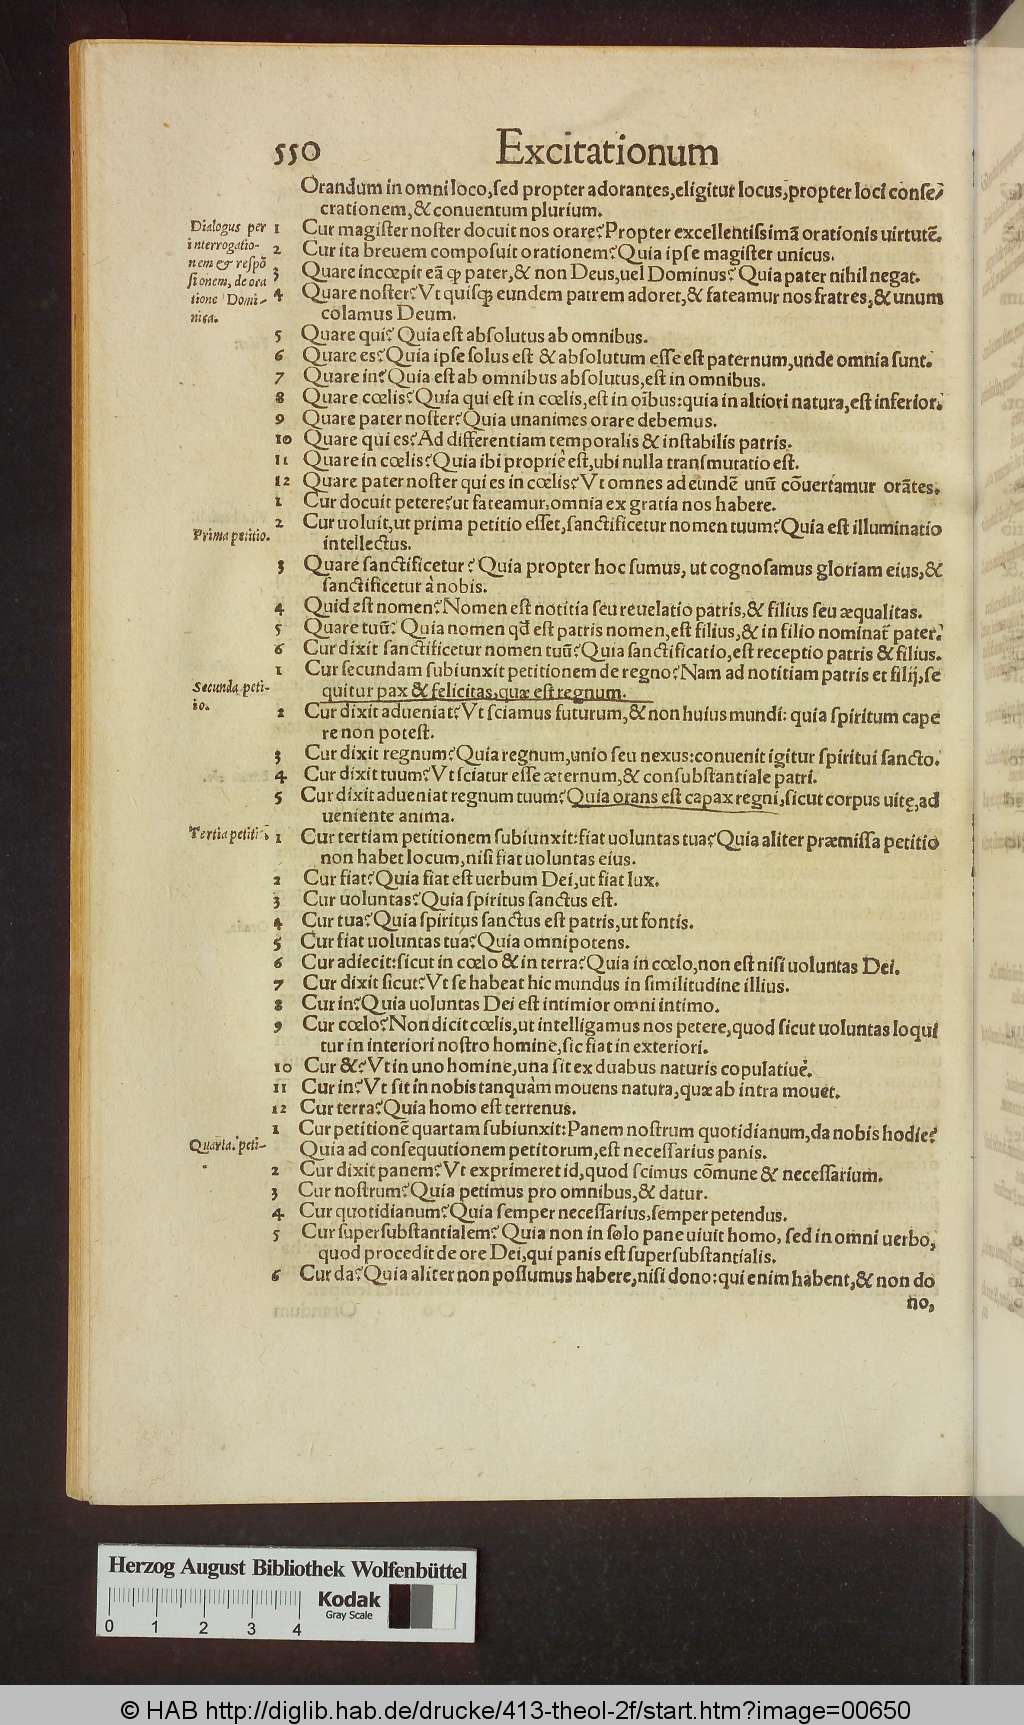 550 Excitationum
Orandum in omni loco, sed propter adorantes, eligitur locus, propter loci conse/
crationem, & conuentum plurium.
Dialogus per
interrogatio-
nem & respō
sionem, de ora
tione Domi-
nica.
1 Cur magister noster docuit nos orare? Propter excellentissimā orationis uirtutē.
2 Cur ita breuem composuit orationem? Quia ipse magister unicus.
3 Quare incœpit eā ꝙ pater, & non Deus, uel Dominus? Quia pater nihil negat.
4 Quare noster? Vt quisqȝ eundem patrem adoret, & fateamur nos fratres, & unum
colamus Deum.
5 Quare qui? Quia est absolutus ab omnibus.
6 Quare es? Quia ipse solus est & absolutum esse est paternum, unde omnia sunt.
7 Quare in? Quia est ab omnibus absolutus, est in omnibus.
8 Quare cœlis? Quia qui est in cœlis, est in oībus: quia in altiori natura, est inferior.
9 Quare pater noster? Quia unanimes orare debemus.
10 Quare qui es? Ad differentiam temporalis & instabilis patris.
11 Quare in cœlis? Quia ibi propriè est, ubi nulla transmutatio est.
12 Quare pater noster qui es in cœlis? Vt omnes ad eundē unū cōuertamur orātes.
1 Cur docuit petere? ut fateamur, omnia ex gratia nos habere.
Prima petitio.
2 Cur uoluit, ut prima petitio esset, sanctificetur nomen tuum? Quia est illuminatio
intellectus.
3 Quare sanctificetur? Quia propter hoc sumus, ut cognosamus gloriam eius, &
sanctificetur à nobis.
4 Quid est nomen? Nomen est notitia seu reuelatio patris, & filius seu æqualitas.
5 Quare tuū? Quia nomen qd̄ est patris nomen, est filius, & in filio nominat᷑ pater.
6 Cur dixit sanctificetur nomen tuū? Quia sanctificatio, est receptio patris & filius.
Secunda peti-
io.
1 Cur secundam subiunxit petitionem de regno? Nam ad notitiam patris et filij, se
quitur pax & felicitas, quæ est regnum.
2 Cur dixit adueniat? Vt sciamus futurum, & non huius mundi: quia spiritum cape
re non potest.
3 Cur dixit regnum? Quia regnum, unio seu nexus: conuenit igitur spiritui sancto.
4 Cur dixit tuum? Vt sciatur esse æternum, & consubstantiale patri.
5 Cur dixit adueniat regnum tuum? Quia orans est capax regni, sicut corpus uitę, ad
ueniente anima.
Tertia petitiō
1 Cur tertiam petitionem subiunxit: fiat uoluntas tua? Quia aliter præmissa petitio
non habet locum, nisi fiat uoluntas eius.
2 Cur fiat? Quia fiat est uerbum Dei, ut fiat lux.
3 Cur uoluntas? Quia spiritus sanctus est.
4 Cur tua? Quia spiritus sanctus est patris, ut fontis.
5 Cur fiat uoluntas tua? Quia omnipotens.
6 Cur adiecit: sicut in cœlo & in terra? Quia in cœlo, non est nisi uoluntas Dei.
7 Cur dixit sicut? Vt se habeat hic mundus in similitudine illius.
8 Cur in? Quia uoluntas Dei est intimior omni intimo.
9 Cur cœlo? Non dicit cœlis, ut intelligamus nos petere, quod sicut uoluntas loqui
tur in interiori nostro homine, sic fiat in exteriori.
10 Cur &? Vt in uno homine, una sit ex duabus naturis copulatiuè.
11 Cur in? Vt sit in nobis tanquàm mouens natura, quæ ab intra mouet.
12 Cur terra? Quia homo est terrenus.
Quarta peti-
1 Cur petitionē quartam subiunxit: Panem nostrum quotidianum, da nobis hodie?
Quia ad consequutionem petitorum, est necessarius panis.
2 Cur dixit panem? Vt exprimeret id, quod scimus cōmune & necessarium.
3 Cur nostrum? Quia petimus pro omnibus, & datur.
4 Cur quotidianum? Quia semper necessarius, semper petendus.
5 Cur supersubstantialem? Quia non in solo pane uiuit homo, sed in omni uerbo,
quod procedit de ore Dei, qui panis est supersubstantialis.
6 Cur da? Quia aliter non possumus habere, nisi dono: qui enim habent, & non do
no,
Herzog August Bibliothek Wolfenbüttel
Kodak
Gray Scale
0 1 2 3 4
© HAB http://diglib.hab.de/drucke/413-theol-2f/start.htm?image=00650